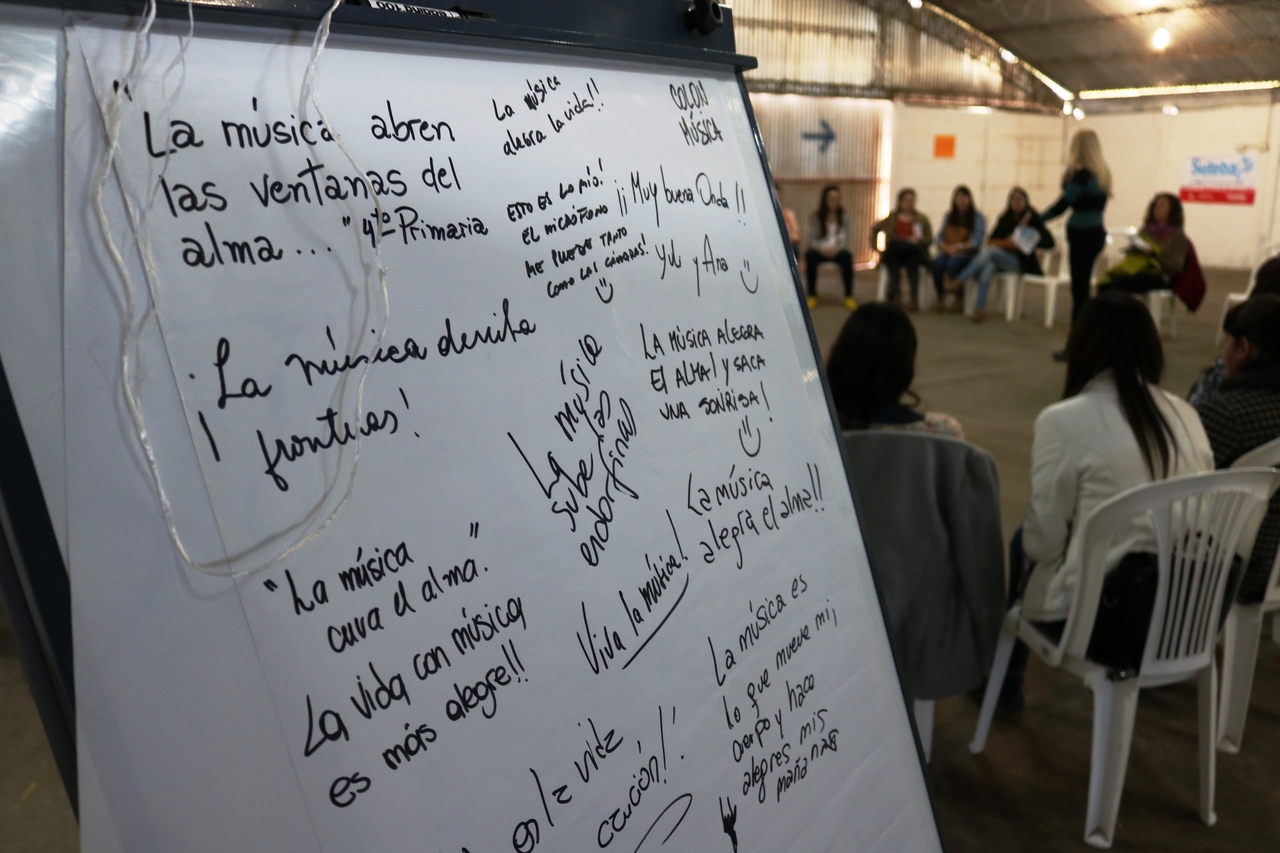 "La música abren
las ventanas del
alma..." 4to Primaria
¡La música derriba
fronteras!
"La música
cura el alma."
La vida con música
es más alegre!!
La música
alegra la vida!!
ESTO ES LO MÍO!
EL MICRÓFONO
ME PUEDE TANTO
COMO LAS CÁMARAS!
La música
sube las
endorfinas
Viva la música!
en la vida
canción!
COLON
MÚSICA
¡¡Muy buena Onda!!
Yuli y Ana
LA MÚSICA ALEGRA
El ALMA! y SACA
UNA SONRISA!
La música
alegra el alma!!
La música es
lo que mueve mi
cuerpo y hace
alegres mis
mañanas
Suteba